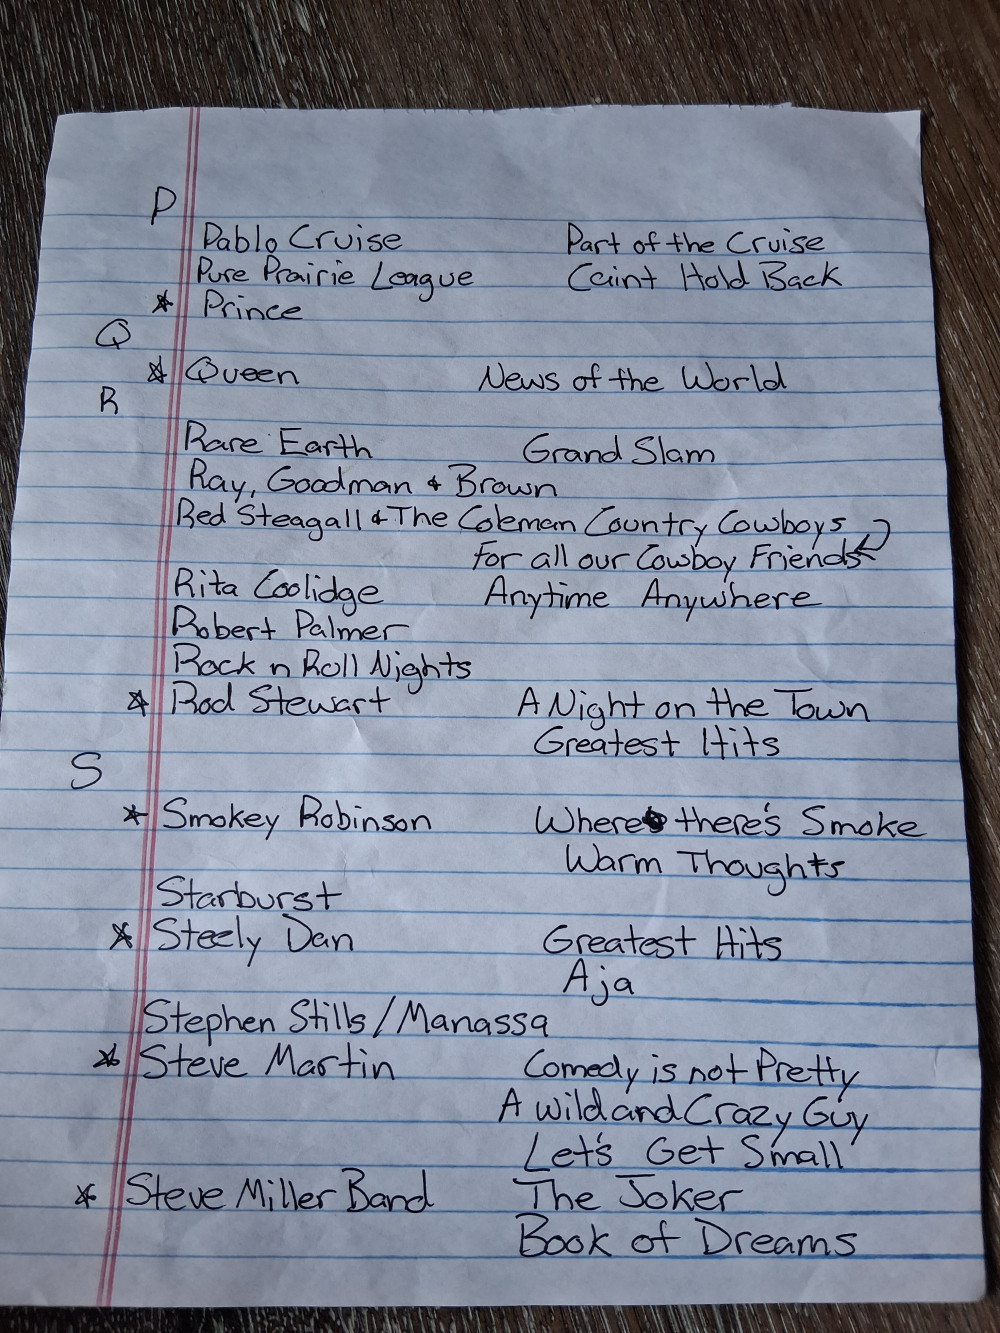 P
Pablo Cruise Part of the Cruise
Pure Prairie League Can't Hold Back
* Prince
Q
* Queen News of the World
R
Rare Earth Grand Slam
Ray, Goodman & Brown
Red Steagall & The Coleman Country Cowboys
for all our Cowboy Friends
Rita Coolidge Anytime Anywhere
Robert Palmer
Rock n Roll Nights
* Rod Stewart A Night on the Town
Greatest Hits
S
* Smokey Robinson Where there's Smoke
Warm Thoughts
Starburst
* Steely Dan Greatest Hits
Aja
Stephen Stills/Manassa
* Steve Martin Comedy is not Pretty
A wild and Crazy Guy
Let's Get Small
* Steve Miller Band The Joker
Book of Dreams